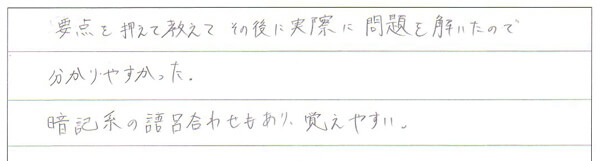 要点を押えて教えて その後に実際に問題を解いたので
分かりやすかった.
暗記系の語呂合わせもあり、覚えやすい。